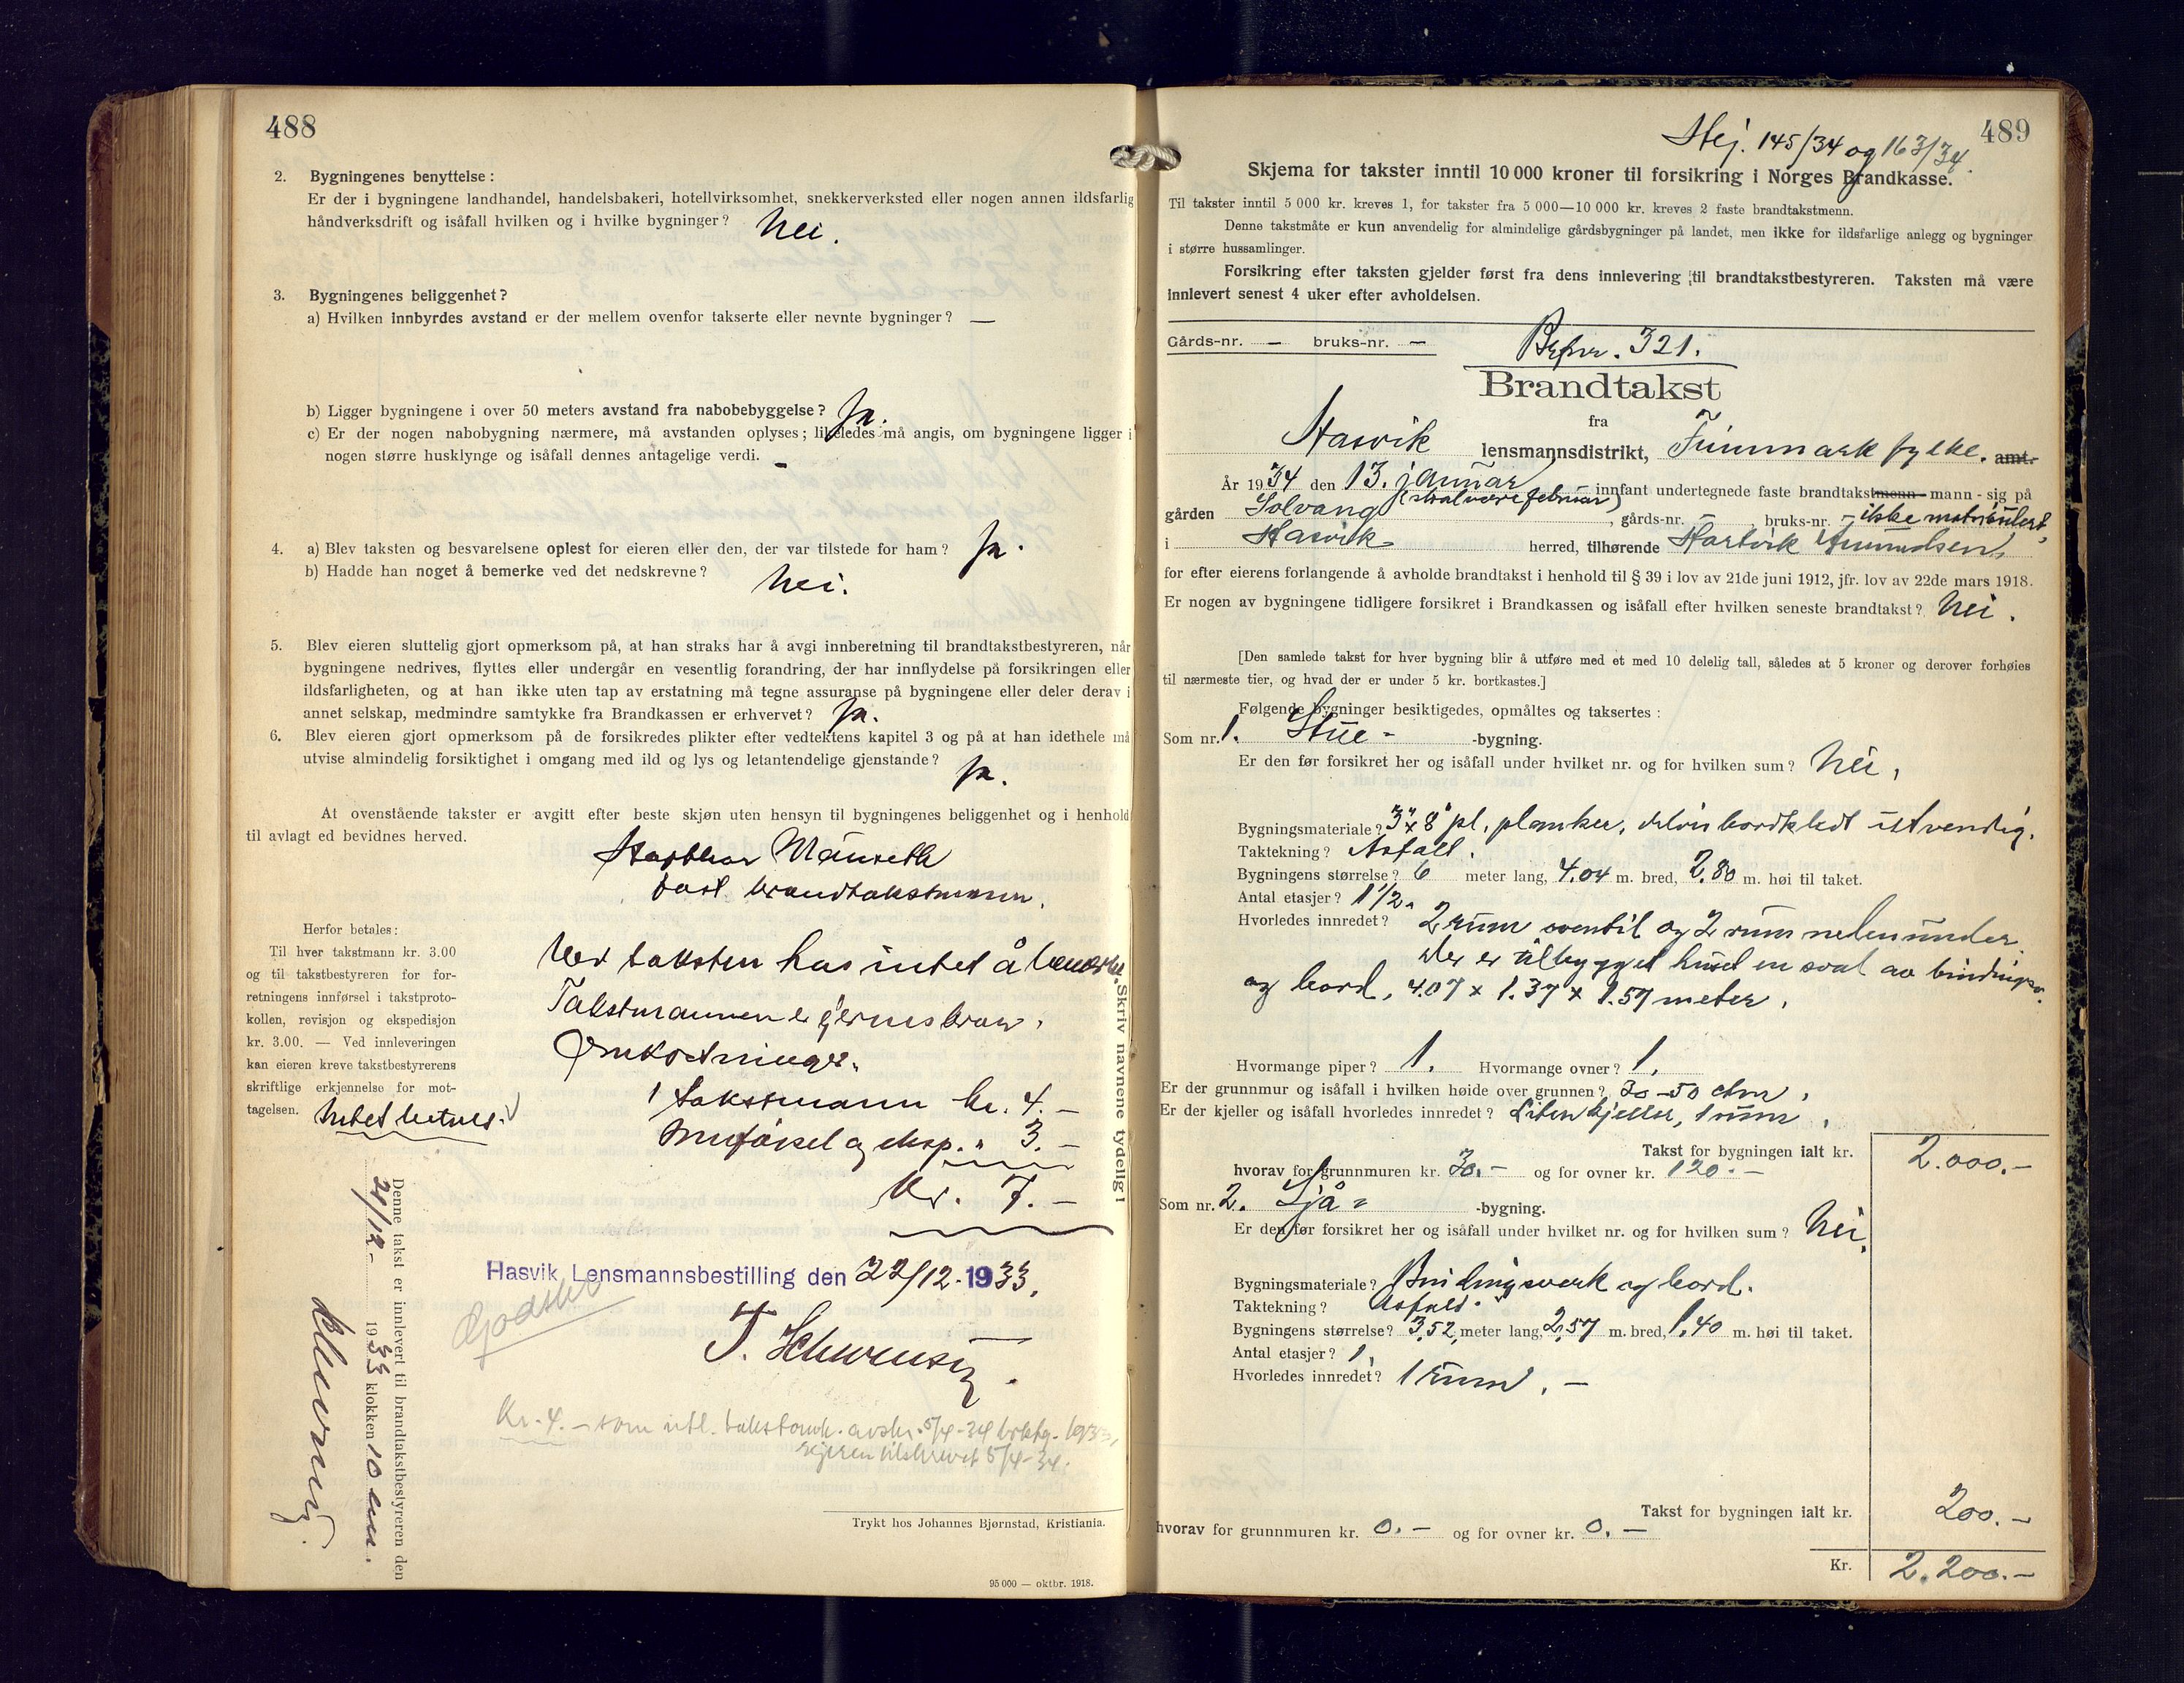 488
2. Bygningenes benyttelse:
Er der i bygningene landhandel, handelsbakeri, hotellvirksomhet, snekkerverksted eller nogen annen ildsfarlig
håndverksdrift og isåfall hvilken og i hvilke bygninger? Nei.
3. Bygningenes beliggenhet?
a) Hvilken innbyrdes avstand er der mellem ovenfor takserte eller nevnte bygninger? —
b) Ligger bygningene i over 50 meters avstand fra nabobebyggelse? Ja.
c) Er der nogen nabobygning nærmere, må avstanden oplyses; likeledes må angis, om bygningene ligger i
nogen større husklynge og isåfall dennes antagelige verdi. -
4. a) Blev taksten og besvarelsene oplest for eieren eller den, der var tilstede for ham? Ja.
b) Hadde han noget å bemerke ved det nedskrevne? Nei.
5. Blev eieren sluttelig gjort opmerksom på, at han straks har å avgi innberetning til brandtakstbestyreren, når
bygningene nedrives, flyttes eller undergår en vesentlig forandring, der har innflydelse på forsikringen eller
ildsfarligheten, og at han ikke uten tap av erstatning må tegne assuranse på bygningene eller deler derav i
annet selskap, medmindre samtykke fra Brandkassen er erhvervet? Ja.
6. Blev eieren gjort opmerksom på de forsikredes plikter efter vedtektens kapitel 3 og på at han idethele må
utvise almindelig forsiktighet i omgang med ild og lys og letantendelige gjenstande? Ja.
At ovenstående takster er avgitt efter beste skjøn uten hensyn til bygningenes beliggenhet og i henhold
til avlagt ed bevidnes herved.
fast brandtakstmann.
Herfor betales:
Til hver takstmann kr. 3.00
og til takstbestyreren for for-
retningens innførsel i takstproto-
kollen, revisjon og ekspedisjon
kr. 3.00. — Ved innleveringen
kan eieren kreve takstbestyrerens
skriftlige erkjennelse for mot-
tagelsen. Intet betales.
Ved taksten has intet å bemerke.
Takstmannen er
Omkostninger.
1 takstmann kr. 4.-
Innførsel og eksp. " 3.-
Kr. 7.-
Skriv navnene tydelig!
Hasvik Lensmannsbestilling den 22/12-1933.
Godskr
Kr. 4.- som utl. takstomk. avskr. 5/4-34 1933,
eieren tilskrevet 5/4-34.
Denne takst er innlevert til brandtakstbestyreren den
21/12- 1933 klokken 10 em.
Trykt hos Johannes Bjørnstad, Kristiania.
95 000 — oktbr. 1918.
489
Skj. 145/34 og 163/34.
Skjema for takster inntil 10 000 kroner til forsikring i Norges Brandkasse.
Til takster inntil 5 000 kr. kreves 1, for takster fra 5 000—10 000 kr. kreves 2 faste brandtakstmenn.
Denne takstmåte er kun anvendelig for almindelige gårdsbygninger på landet, men ikke for ildsfarlige anlegg og bygninger
i større hussamlinger.
Forsikring efter taksten gjelder først fra dens innlevering til brandtakstbestyreren. Taksten må være
innlevert senest 4 uker efter avholdelsen.
Gårds-nr. — bruks-nr. —
Brfnr. 321.
Brandtakst
fra
Hasvik lensmannsdistrikt, Finnmark fylke. amt.
År 1934 den 13. januar (skal være februar) innfant undertegnede faste brandtakstmenn - mann - sig på
gården Solvang, gårds-nr. - bruks-nr. - ikke matrikulert,
i Hasvik herred, tilhørende Hartvik Amundsen,
for efter eierens forlangende å avholde brandtakst i henhold til § 39 i lov av 21de juni 1912, jfr. lov av 22de mars 1918.
Er nogen av bygningene tidligere forsikret i Brandkassen og isåfall efter hvilken seneste brandtakst? Nei.
[Den samlede takst for hver bygning blir å utføre med et med 10 delelig tall, således at 5 kroner og derover forhøies
til nærmeste tier, og hvad der er under 5 kr. bortkastes.]
Følgende bygninger besiktigedes, opmåltes og taksertes:
Som nr. 1. Stue- -bygning.
Er den før forsikret her og isåfall under hvilket nr. og for hvilken sum? Nei.
Bygningsmateriale? 3"x8" pl. planker, delvis bordkledt utvendig.
Taktekning? Asfalt.
Bygningens størrelse? 6 meter lang, 4.04 m. bred, 2.80 m. høi til taket.
Antal etasjer? 1 1/2.
Hvorledes innredet? 2 rum oventil og 2 rum nedenunder.
Der er tilbygget huset en sval av bindingsv.
og bord, 4.07 x 1.37 x 1.57 meter.
Hvormange piper? 1. Hvormange ovner? 1.
Er der grunnmur og isåfall i hvilken høide over grunnen? 20-50 ctm.
Er der kjeller og isåfall hvorledes innredet? Liten kjeller, 1 rum.
Takst for bygningen ialt kr. 2.000.-
hvorav for grunnmuren kr. 30.- og for ovner kr. 120.-
Som nr. 2. Sjå- -bygning.
Er den før forsikret her og isåfall under hvilket nr. og for hvilken sum? Nei.
Bygningsmateriale? Bindingsverk og bord.
Taktekning? Asfalt.
Bygningens størrelse? 3,52 meter lang, 2,57 m. bred, 1,40 m. høi til taket.
Antal etasjer? 1.
Hvorledes innredet? 1 rum. -
Takst for bygningen ialt kr. 200.-
hvorav for grunnmuren kr. 0.- og for ovner kr. 0.-
Kr. 2.200.-